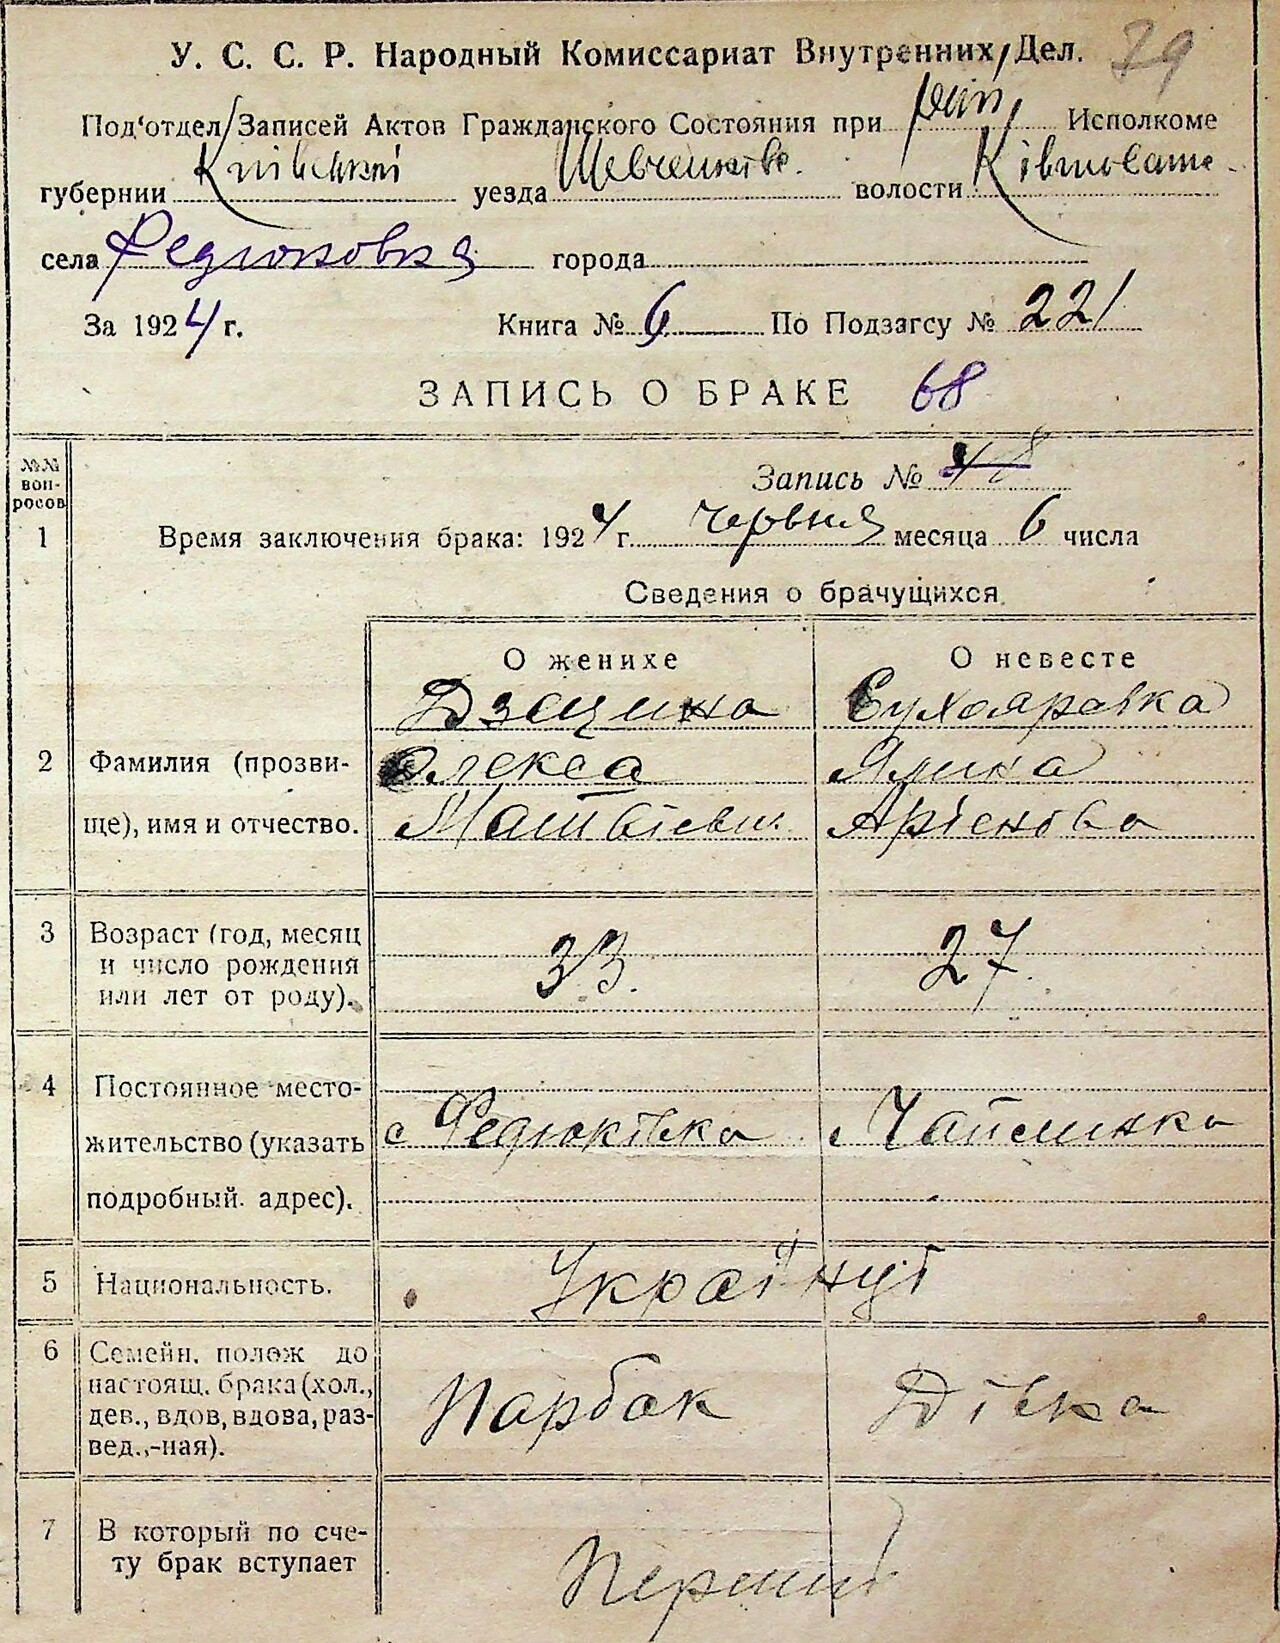 У. С. С. Р. Народный Комиссариат Внутренних Дел. 79
Под'отдел Записей Актов Гражданского Состояния при рай Исполкоме
губернии Київської уезда Шевченків. волости
села Федюковка города
За 1924 г. Книга № 6 По Подзагсу № 221
ЗАПИСЬ О БРАКЕ 68
№№ вопросов
Запись № 48
1 Время заключения брака: 1924 г. червня месяца 6 числа
Сведения о брачущихся.
О женихе О невесте
Дзецина Сухояравка
2 Фамилия (прозви- Олекса Ялина
ще), имя и отчество. Матвієвич Арсенова
3 Возраст (год, месяц
и число рождения 33. 27.
или лет от роду).
4 Постоянное место-
жительство (указать с Федюківка с Чаплинка
подробный адрес).
5 Национальность. Українці
6 Семейн. полож до
настоящ. брака (хол., Парубок Дівка
дев., вдов, вдова, раз-
вед.,-ная).
7 В который по сче-
ту брак вступает Перший